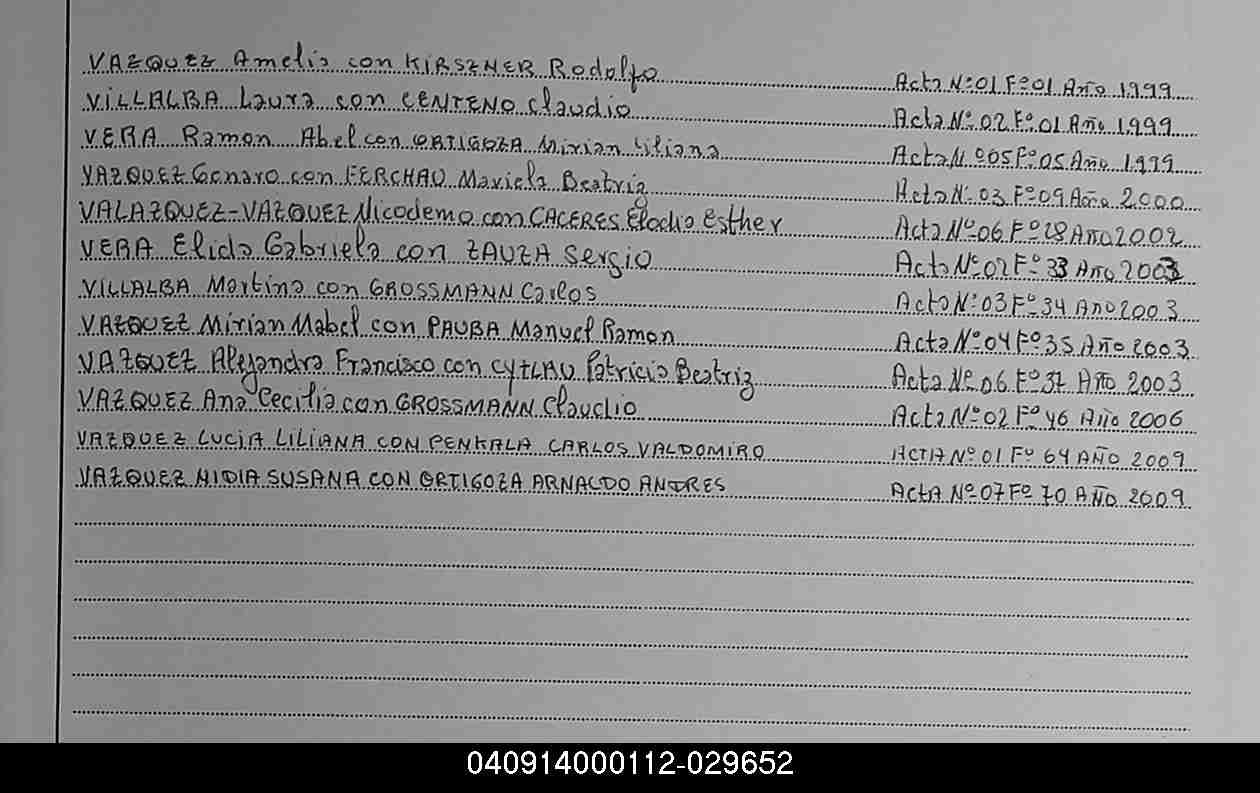 VAZQUEZ Amelia con KIRSZNER Rodolfo Acta Nº01 Fº01 Año 1999
VILLALBA Laura con CENTENO Claudio Acta Nº 02 Fº 01 Año 1999
VERA Ramon Abel con ORTIGOZA Mirian Liliana Acta Nº 05 Fº 05 Año 1999
VAZQUEZ Genaro con FERCHAU Mariela Beatriz Acta Nº 03 Fº 09 Año 2000
VALAZQUEZ-VAZQUEZ Nicodemo con CACERES Elodia Esther Acta Nº 06 Fº 28 Año 2002
VERA Elida Gabriela con ZAUZA Sergio Acta Nº 02 Fº 33 Año 2003
VILLALBA Martina con GROSSMANN Carlos Acta Nº 03 Fº 34 Año 2003
VAZQUEZ Mirian Mabel con PAUBA Manuel Ramon Acta Nº 04 Fº 35 Año 2003
VAZQUEZ Alejandro Francisco con CYTLAU Patricia Beatriz Acta Nº 06 Fº 37 Año 2003
VAZQUEZ Ana Cecilia con GROSSMANN Claudio Acta Nº 02 Fº 46 Año 2006
VAZQUEZ LUCIA LILIANA CON PENKALA CARLOS VALDOMIRO ACTA Nº 01 Fº 64 AÑO 2009
VAZQUEZ NIDIA SUSANA CON ORTIGOZA ARNALDO ANDRES ACTA Nº 07 Fº 70 AÑO 2009
040914000112-029652